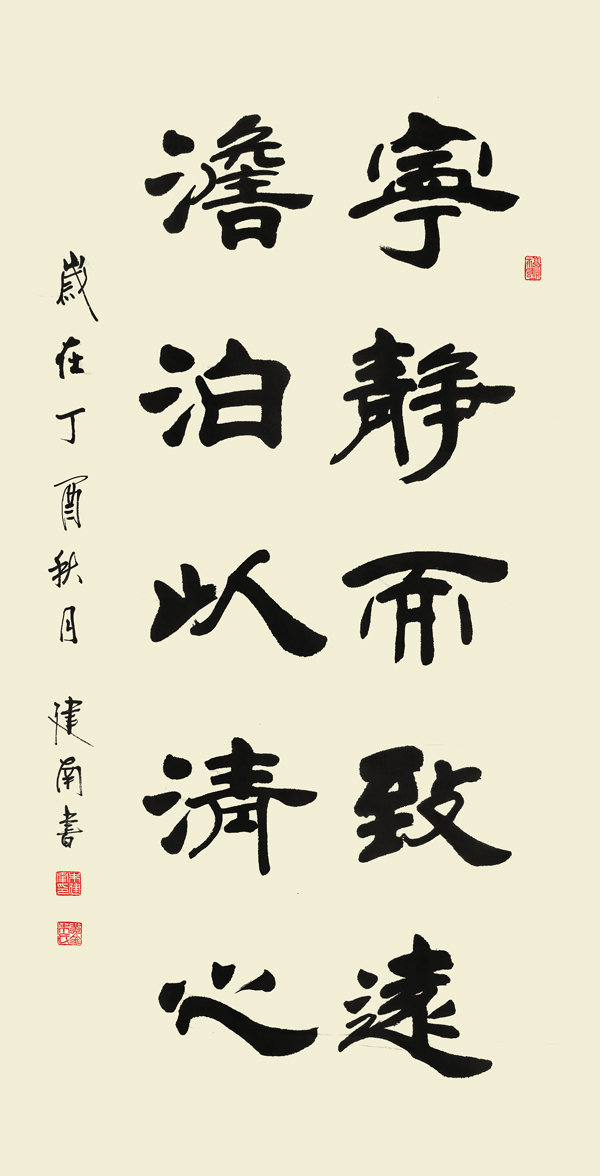 寧靜而致遠
澹泊以清心
歲在丁酉秋月 建南書